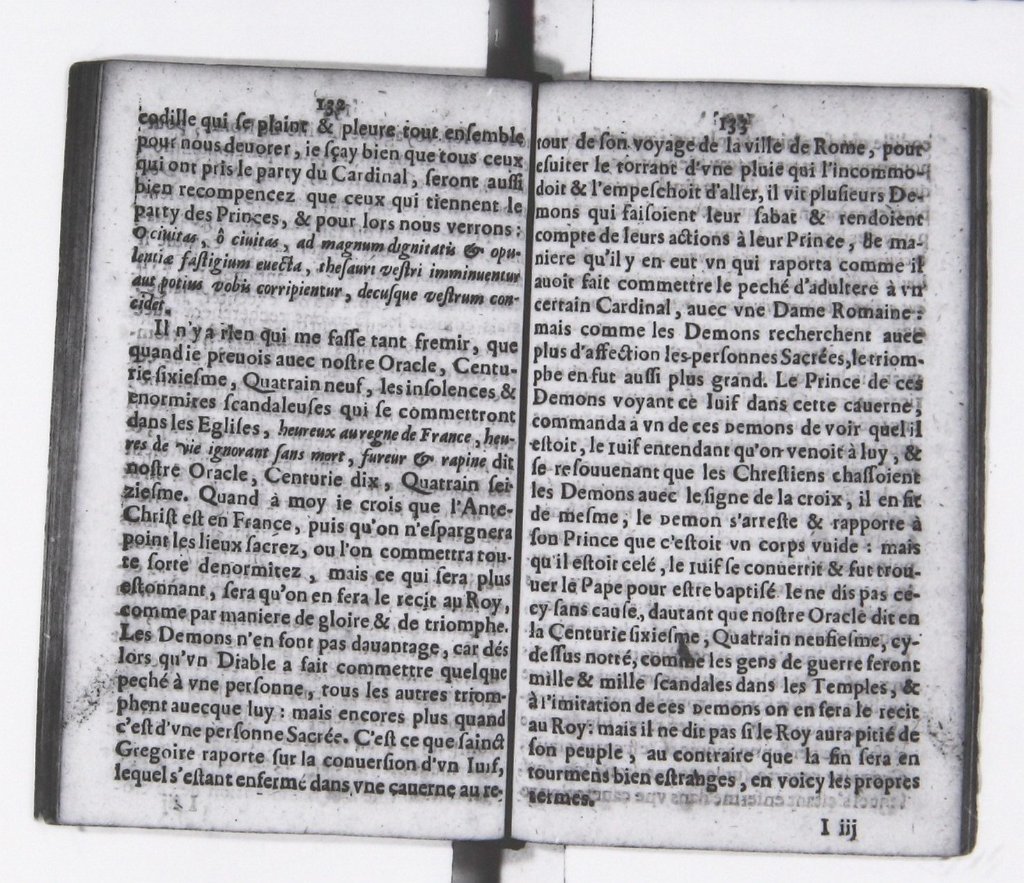 132
codille qui se plaint & pleure tout ensemble
pour nous deuorer, ie sçay bien que tous ceux
qui ont pris le party du Cardinal, seront aussi
bien recompencez que ceux qui tiennent le
party des Princes, & pour lors nous verrons:
O ciuitas, ô ciuitas, ad magnum dignitatis & opu-
lentiæ fastigium euecta, thesauri vestri imminuentur
aut potius vobis corripientur, decusque vestrum con-
cidet.
Il n'y a rien qui me fasse tant fremir, que
quand ie preuois auec nostre Oracle, Centu-
rie sixiesme, Quatrain neuf, les insolences &
enormites scandaleuses qui se commettront
dans les Eglises, heureux au regne de France, heu-
res de vie ignorant sans mort, fureur & rapine dit
nostre Oracle, Centurie dix, Quatrain sei-
ziesme. Quand à moy ie crois que l'Ante-
Christ est en France, puis qu'on n'espargnera
point les lieux sacrez, ou l'on commettra tou-
te sorte denormitez, mais ce qui sera plus
estonnant, sera qu'on en fera le recit au Roy,
comme par maniere de gloire & de triomphe.
Les Demons n'en font pas dauantage, car dés
lors qu'vn Diable a fait commettre quelque
peché à vne personne, tous les autres triom-
phent auecque luy: mais encores plus quand
c'est d'vne personne Sacrée. C'est ce que sainct
Gregoire raporte sur la conuersion d'vn Iuif,
lequel s'estant enfermé dans vne cauerne au re-
133
tour de son voyage de la ville de Rome, pour
esuiter le torrant d'vne pluie qui l'incommo-
doit & l'empeschoit d'aller, il vit plusieurs De-
mons qui faisoient leur sabat & rendoient
compte de leurs actions à leur Prince, de ma-
niere qu'il y en eut vn qui raporta comme il
auoit fait commettre le peché d'adultere à vn
certain Cardinal, auec vne Dame Romaine:
mais comme les Demons recherchent auec
plus d'affection les personnes Sacrées, le triom-
phe en fut aussi plus grand. Le Prince de ces
Demons voyant ce Iuif dans cette cauerne,
commanda à vn de ces Demons de voir quel il
estoit, le Iuif entendant qu'on venoit à luy, &
se resouuenant que les Chrestiens chassoient
les Demons auec le signe de la croix, il en fit
de mesme, le Demon s'arreste & rapporte à
son Prince que c'estoit vn corps vuide: mais
qu'il estoit celé, le Iuif se conuertit & fut trou-
uer le Pape pour estre baptisé. Ie ne dis pas ce-
cy sans cause, dautant que nostre Oracle dit en
la Centurie sixiesme, Quatrain neufiesme, cy-
dessus notté, comme les gens de guerre feront
mille & mille scandales dans les Temples, &
à l'imitation de ces Demons on en fera le recit
au Roy: mais il ne dit pas si le Roy aura pitié de
son peuple, au contraire que la fin sera en
tourmens bien estranges, en voicy les propres
termes.
I iij